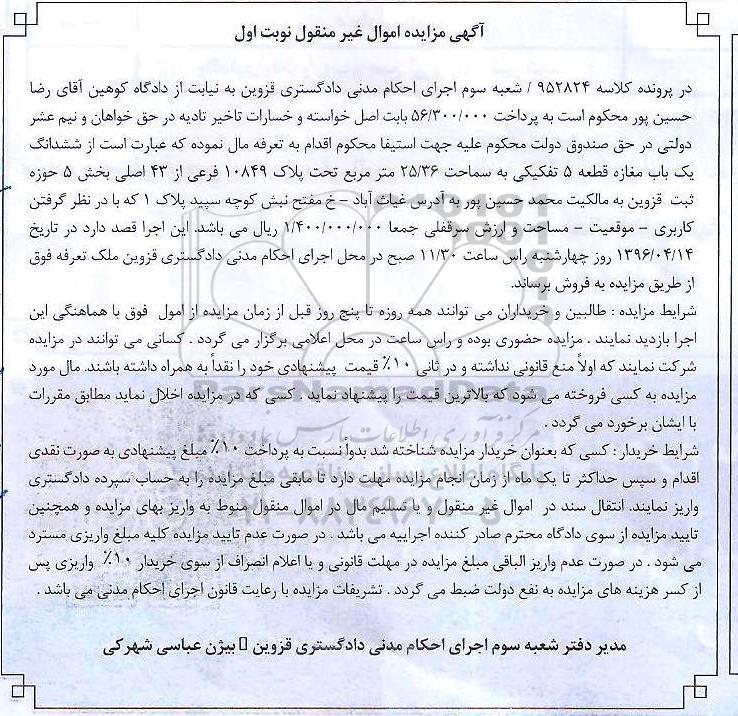 آگهی مزایده اموال غیر منقول نوبت اول
در پرونده کلاسه ۹۵۲۸۲۴ / شعبه سوم اجرای احکام مدنی دادگستری قزوین به نیابت از دادگاه کوهین آقای رضا
حسین پور محکوم است به پرداخت ۵۶/۳۰۰/۰۰۰ بابت اصل خواسته و خسارات تاخیر تادیه در حق خواهان و نیم عشر
دولتی در حق صندوق دولت محکوم علیه جهت استیفا محکوم اقدام به تعرفه مال نموده که عبارت است از ششدانگ
یک باب مغازه قطعه ۵ تفکیکی به سماحت ۲۵/۳۶ متر مربع تحت پلاک ۱۰۸۴۹ فرعی از ۴۳ اصلی بخش ۵ حوزه
ثبت قزوین به مالکیت محمد حسین پور به آدرس غیاث آباد – خ مفتح نبش کوچه سپید پلاک ۱ که با در نظر گرفتن
کاربری – موقعیت – مساحت و ارزش سرقفلی جمعا ۱/۴۰۰/۰۰۰/۰۰۰ ریال می باشد. این اجرا قصد دارد در تاریخ
۱۳۹۶/۰۴/۱۴ روز چهارشنبه راس ساعت ۱۱/۳۰ صبح در محل اجرای احکام مدنی دادگستری قزوین ملک تعرفه فوق
از طریق مزایده به فروش برساند.
شرایط مزایده : طالبین و خریداران می توانند همه روزه تا پنج روز قبل از زمان مزایده از امول فوق با هماهنگی این
اجرا بازدید نمایند . مزایده حضوری بوده و راس ساعت در محل اعلامی برگزار می گردد . کسانی می توانند در مزایده
شرکت نمایند که اولاً منع قانونی نداشته و در ثانی ۱۰٪ قیمت پیشنهادی خود را نقداً به همراه داشته باشند. مال مورد
مزایده به کسی فروخته می شود که بالاترین قیمت را پیشنهاد نماید . کسی که در مزایده اخلال نماید مطابق مقررات
با ایشان برخورد می گردد .
شرایط خریدار : کسی که بعنوان خریدار مزایده شناخته شد بدواً نسبت به پرداخت ۱۰٪ مبلغ پیشنهادی به صورت نقدی
اقدام و سپس حداکثر تا یک ماه از زمان انجام مزایده مهلت دارد تا مابقی مبلغ مزایده را به حساب سپرده دادگستری
واریز نمایند. انتقال سند در اموال غیر منقول و یا تسلیم مال در اموال منقول منوط به واریز بهای مزایده و همچنین
تایید مزایده از سوی دادگاه محترم صادر کننده اجراییه می باشد . در صورت عدم تایید مزایده کلیه مبلغ واریزی مسترد
می شود . در صورت عدم واریز الباقی مبلغ مزایده در مهلت قانونی و یا اعلام انصراف از سوی خریدار ۱۰٪ واریزی پس
از کسر هزینه های مزایده به نفع دولت ضبط می گردد . تشریفات مزایده با رعایت قانون اجرای احکام مدنی می باشد .
مدیر دفتر شعبه سوم اجرای احکام مدنی دادگستری قزوین ▯ بیژن عباسی شهرکی
ParsNamadData